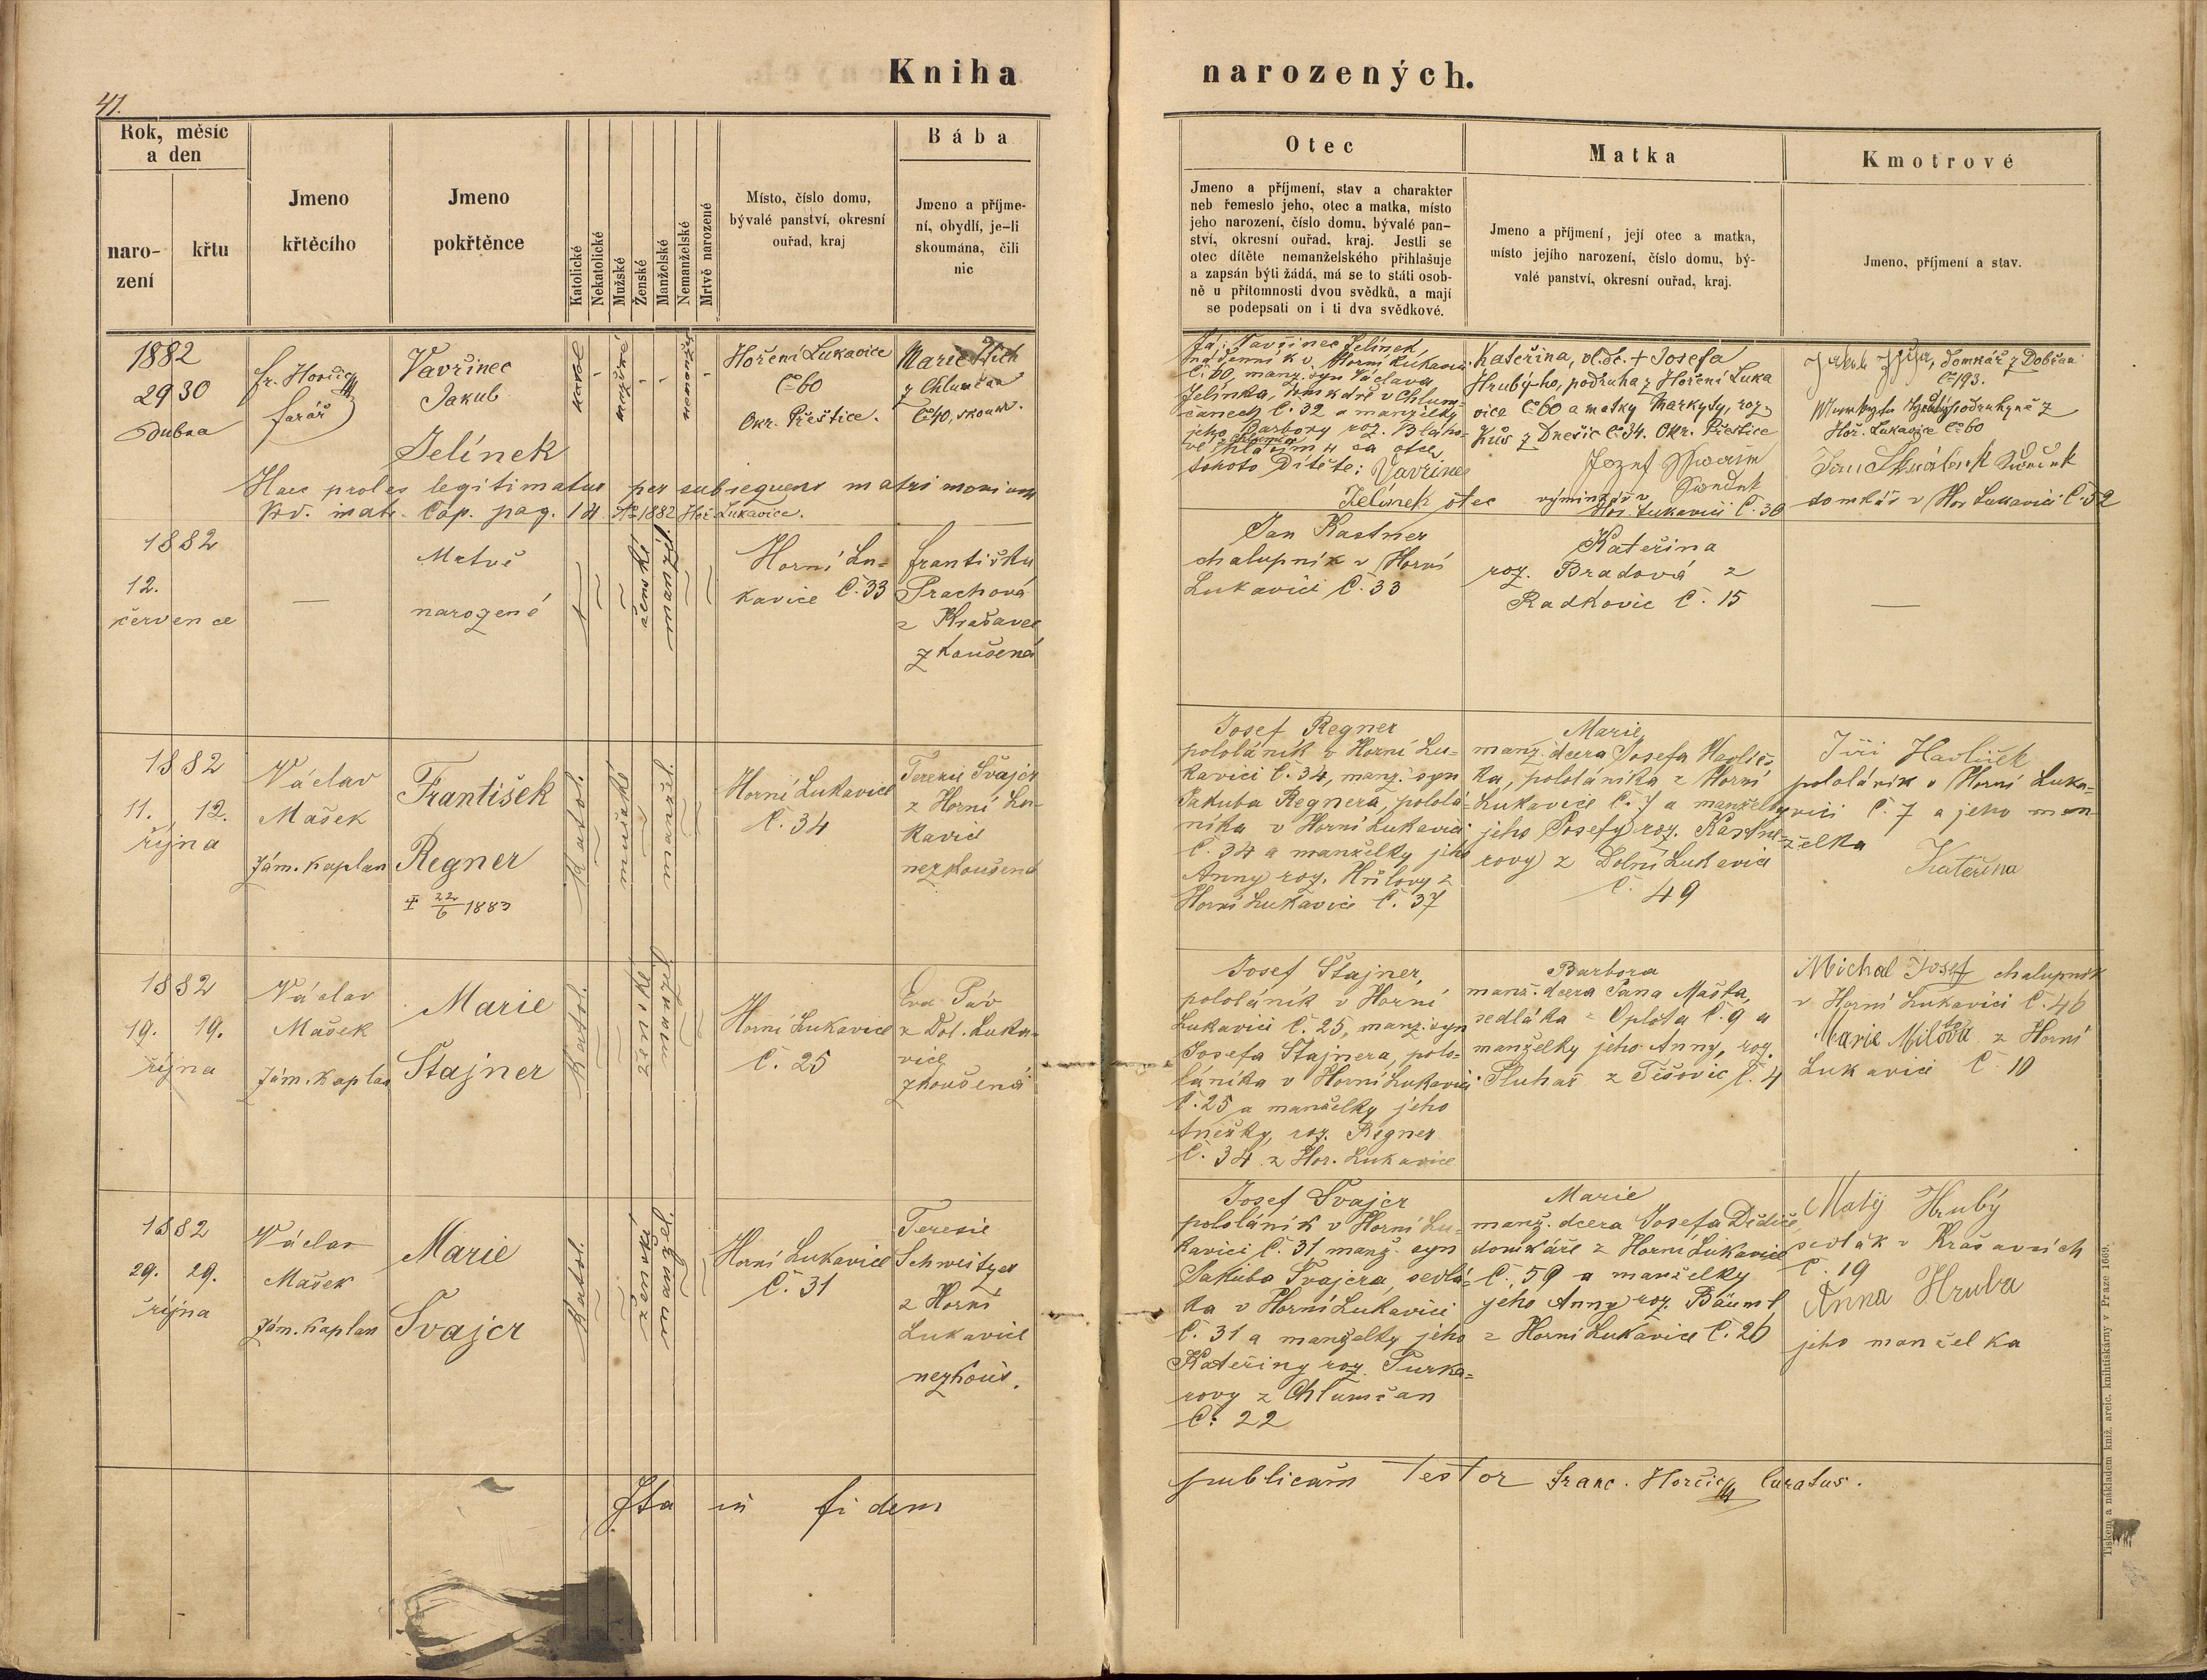 Kniha narozených.
41.
Rok, měsíc
a den
naro-
zení
křtu
Jmeno
křtěcího
Jmeno
pokřtěnce
Katolické
Nekatolické
Mužské
Ženské
Manželské
Nemanželské
Mrtvě narozené
Místo, číslo domu,
bývalé panství, okresní
ouřad, kraj
Bába
Jmeno a příjme-
ní, obydlí, je-li
skoumána, čili
nic
Otec
Jmeno a příjmení, stav a charakter
neb řemeslo jeho, otec a matka, místo
jeho narození, číslo domu, bývalé pan-
ství, okresní ouřad, kraj. Jestli se
otec dítěte nemanželského přihlašuje
a zapsán býti žádá, má se to státi osob-
ně u přítomnosti dvou svědků, a mají
se podepsati on i ti dva svědkové.
Matka
Jmeno a příjmení, její otec a matka,
místo jejího narození, číslo domu, bý-
valé panství, okresní ouřad, kraj.
Kmotrové
Jmeno, příjmení a stav.
1882
29 30
Dubna
fr. Horčic
farář
Vavřinec
Jakub
Jelínek
katol
mužské
nemanžel
Hoření Lukavice
Č 60
Okr. Přeštice.
Marie
z Chlumčan
Č 40, skoum.
Já: Vavřinec Jelínek
nádenník v Horní Lukavici
Č. 60, manž. syn Václava
Jelínka, domkáře v Chlum-
čanech Č. 32 a manželky
jeho Barbory roz.
za otce
tohoto Dítěte: Vavřinec
Jelínek otec
Kateřina, vl. dc. + Josefa
Hrubý-ho, podruha z Hoření Luka
vice Č 60 a matky Markyty, roz.
Kůs z Dnešic Č 34. Okr. Přeštice
Jozef
výminkář v
Hor. Lukavici Č. 30
domkář z Dobřan
Č 193.
podruhyně z
Hoř. Lukavice Č 60
Jan
domkář v Hor Lukavici Č. 52
Haec proles legitimatur per subsequens matrimonium
Vid. matr. Cop. pag. 14 Ao 1882 Hoř. Lukavice.
1882
12.
července
—
Mrtvě
narozené
ženské
manžel.
Horní Lu-
kavice Č. 33
Františka
Prachová
z Krašavec
zkoušená
Jan Kastner
chalupník v Horní
Lukavici Č. 33
Kateřina
roz. Bradová z
Radkovic Č. 15
—
1882
11. 12.
října
Václav
Mašek
zám. kaplan
František
Regner
‡ 22/6 1883
Katol.
mužské
manžel.
Horní Lukavice
Č. 34
Terezie Švajcr
z Horní Lu-
kavic
nezkoušená
Josef Regner
pololáník v Horní Lu-
kavici Č. 34, manž. syn
Jakuba Regnera, pololá-
níka v Horní Lukavici
Č. 34 a manželky jeho
Anny roz. Hůlovy z
Horní Lukavice Č. 37
Marie
manž. dcera Josefa Havlíč-
ka, pololáníka z Horní
Lukavice Č. 7 a manželky
jeho Josefy roz. Kastne-
rovy z Dolní Lukavice
Č. 49
Jiří Havlíček
pololáník v Horní Luka-
vici Č. 7 a jeho man-
želka
Kateřina
1882
19. 19.
října
Václav
Mašek
zám. kaplan
Marie
Štajner
Katol.
ženské
manžel.
Horní Lukavice
Č. 25
Eva Páv
z Dol. Luka-
vice
zkoušená
Josef Štajner,
pololáník v Horní
Lukavici Č. 25, manž. syn
Josefa Štajnera, polo-
láníka v Horní Lukavici
Č. 25 a manželky jeho
Anežky, roz. Regner
Č. 34 z Hor. Lukavice
Barbora
manž. dcera Jana Mašta,
sedláka z Oplota Č. 9 a
manželky jeho Anny, roz.
Pluhař z Těšovic Č. 4
Michal Josef chalupník
v Horní Lukavici Č. 46
Marie Milota z Horní
Lukavici Č. 10
1882
29. 29.
října
Václav
Mašek
zám. kaplan
Marie
Švajcr
Katol.
ženské
manžel.
Horní Lukavice
Č. 31
Terezie
Schweitzer
z Horní
Lukavice
nezkouš.
Josef Švajcr
pololáník v Horní Lu-
kavici Č. 31 manž. syn
Jakuba Švajcra, sedlá-
ka v Horní Lukavici
Č. 31 a manželky jeho
Kateřiny roz. Purka-
rovy z Chlumčan
Č. 22
Marie
manž. dcera Josefa Dědiče,
domkáře z Horní Lukavice
Č. 59 a manželky
jeho Anny roz. Bäuml
z Horní Lukavice Č. 26
Matěj Hrubý
sedlák v Krašavcích
Č. 19
Anna Hruba
jeho manželka
Ita in fidem publicam testor Franc. Horčic curatus.
Tiskem a nákladem kniž. arcib. knihtiskárny v Praze 1669.